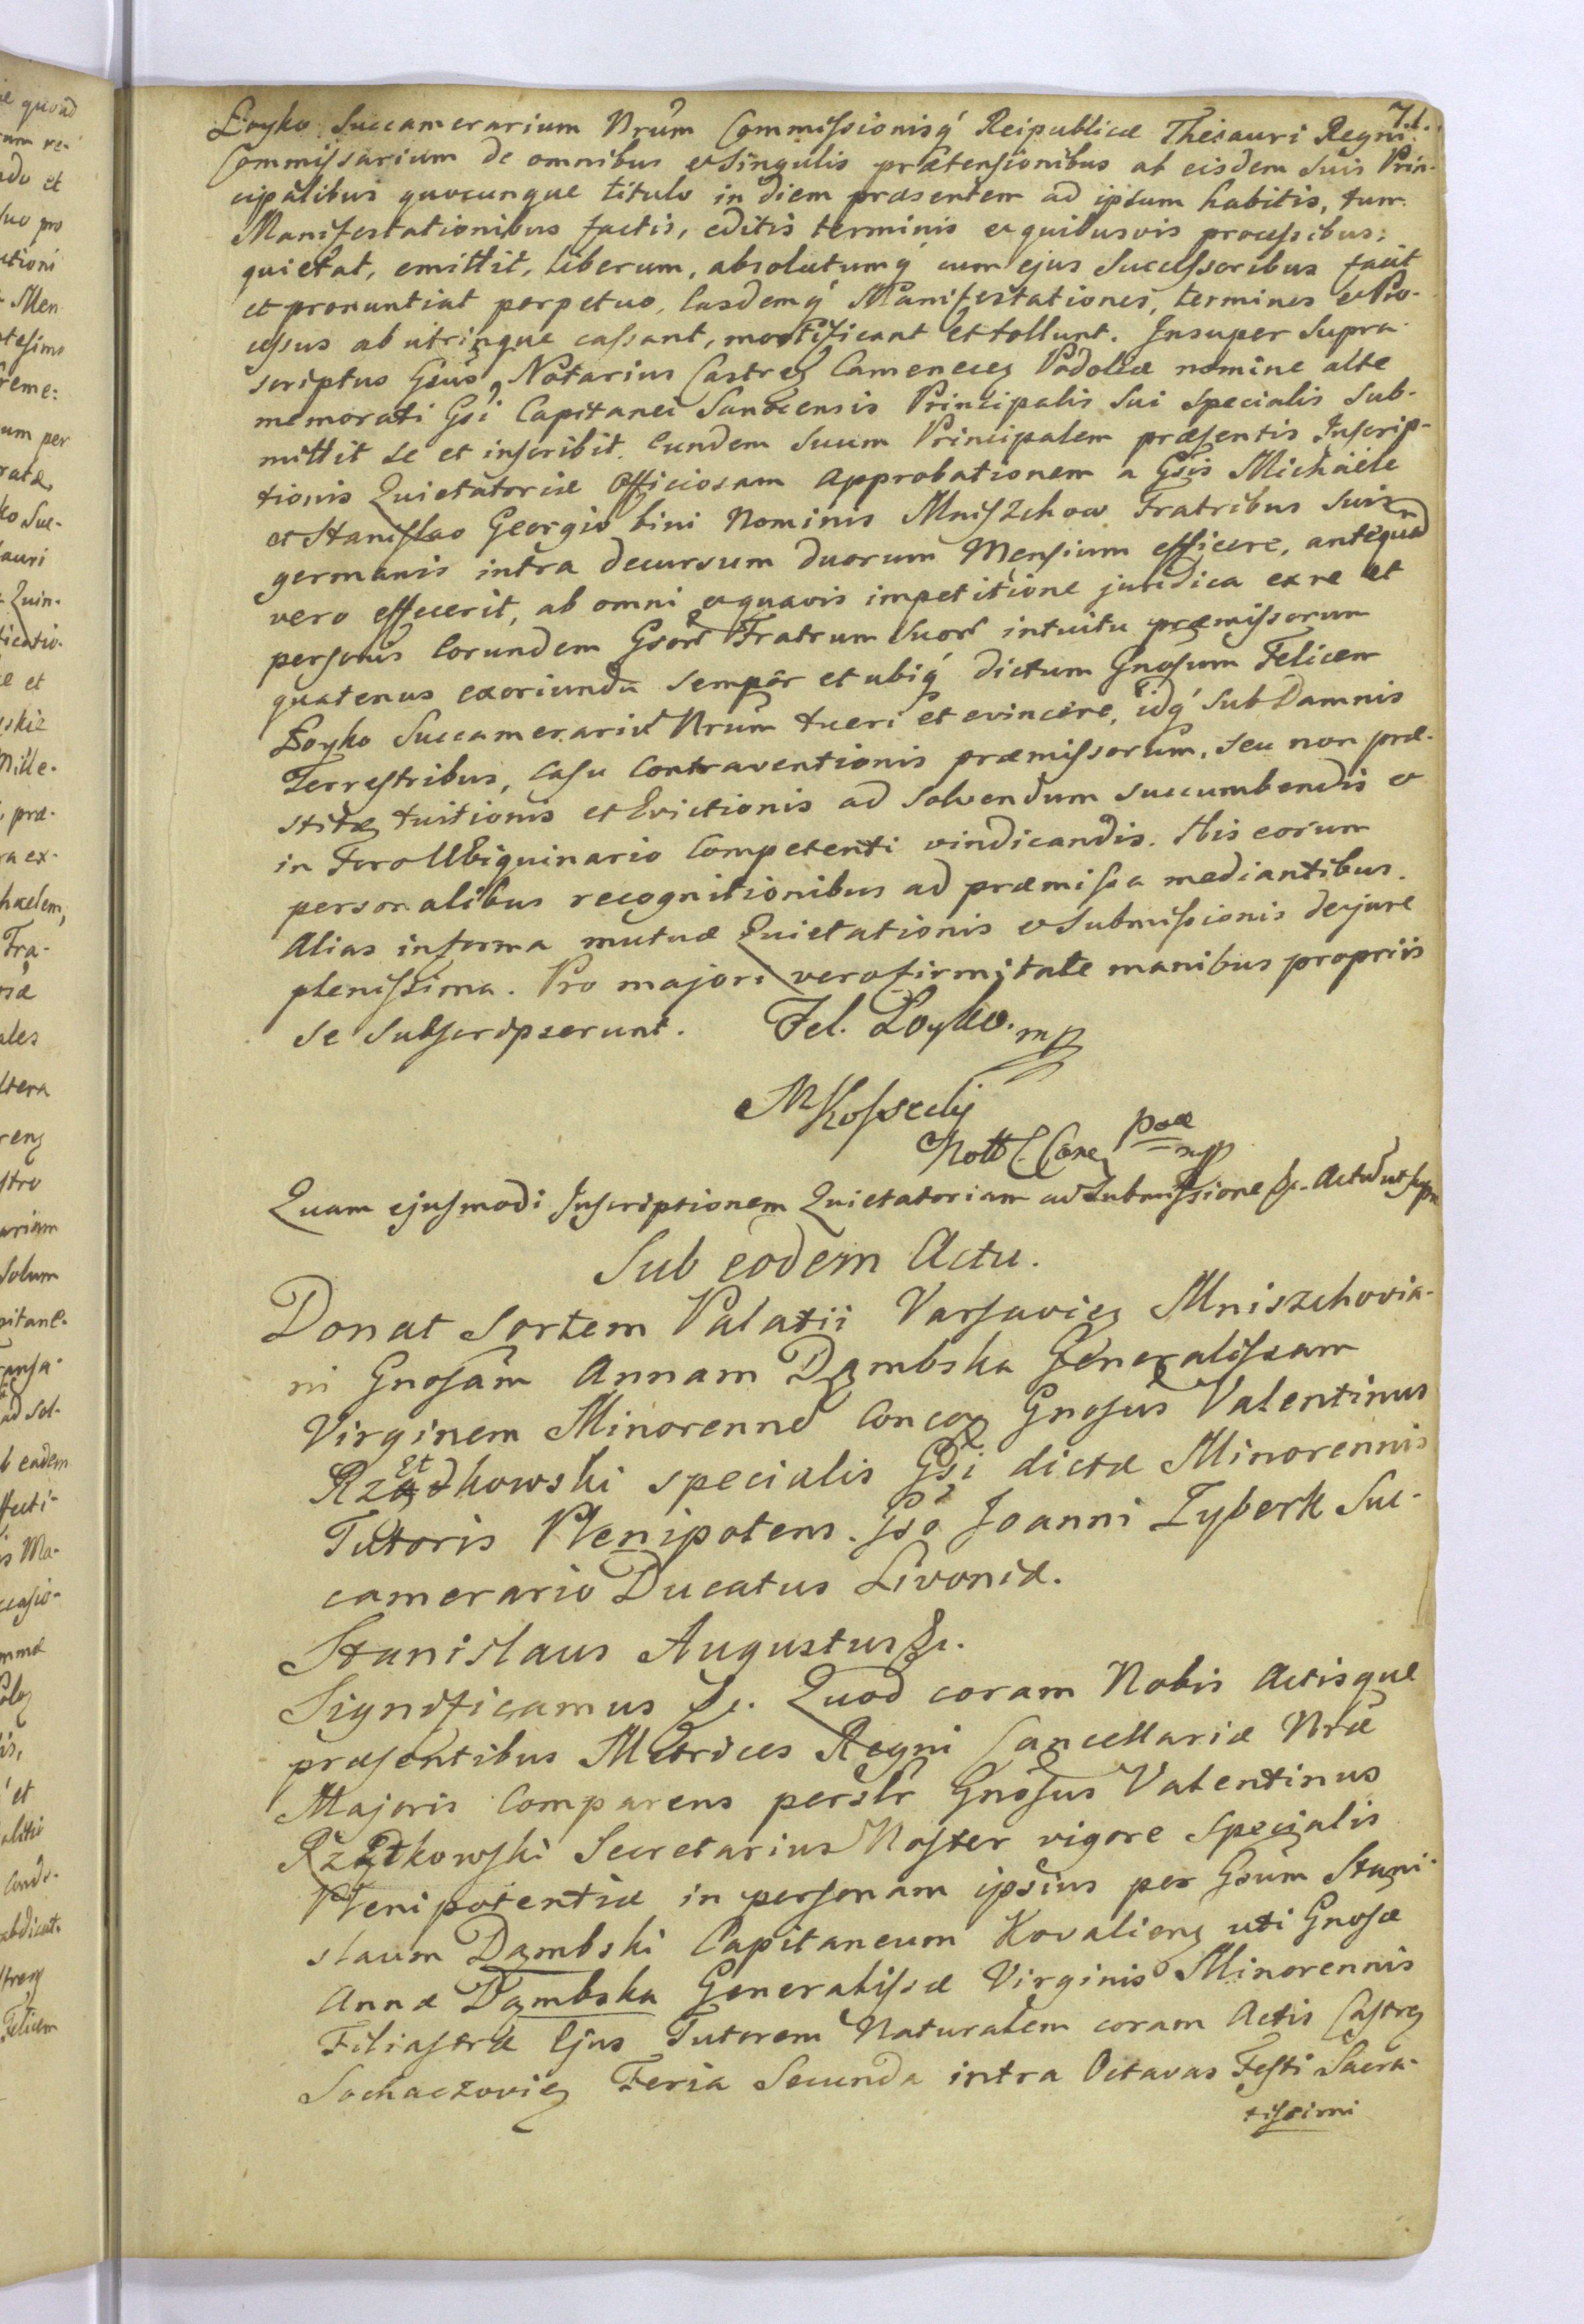 71.
Łoyko Succamerarium Nrūm Commissionisq́ Reipublicæ Thesauri Regni
Commissarium de omnibus et Singulis prætensionibus ab eisdem Suis Prin-
cipalibus quocunque titulo in diem præsentem ad ipsum habitis, tum
Manifestationibus factis, editis terminis et quibusvis processibus;
quietat, emittit, liberum, absolutumq́ cum ejus Successoribus facit
et pronuntiat perpetuo, Easdemq́ Manifestationes, terminos et Pro-
cessus ab utrinque cassant, mortificant et tollunt. Insuper Supra
scriptus Gsus Notarius Castreg Cameneceg Podoliæ nomine alte
memorati Gsi Capitanei Sanocensis Principalis Sui Specialis Sub-
mittit se et inscribit Eundem Suum Principalem præsentis Inscrip-
tionis Quietatoriæ Officiosam Approbationem a Gsis Michaele
et Stanislao Georgio bini Nominis Mniszchow Fratribus Suis
germanis intra decursum duorum Mensium efficere, antequā
vero effecerit, ab omni et quavis impetitione juridica ex re et
personis Eorundem Gsor Fratrum Suor intuitu præmissorum
quatenus exoriunda semper et ubiq́ dictum Gnosum Felicem
Łoyko Succamerariū Nrum tueri et evincere, idq́ Sub Damnis
Terrestribus, Casu Contraventionis præmissorum, seu non præ-
stitæ tuitionis et Evictionis ad Solvendum succumbendis et
in Foro Ubiquinario Competenti vindicandis. His eorum
personalibus recognitionibus ad præmissa mediantibus.
Alias in forma mutuæ Quietationis et Submissionis de jure
plenissima. Pro majori vero firmitate manibus propriis
se Subscripserunt. Fel. Łoyko. mp
MKossecki
Nott C. Came Poæ mpp
Quam ejusmodi Inscriptionem Quietatoriam ac Submissione &c. Actū ut Supra
Sub eodem Actu.
Donat Sortem Palatii Varsavieg Mniszchovia-
ni Gnosam Annam Dąmbska Generalissam
Virginem Minorennē Conceg Gnosus Valentinus
Rzętkowski specialis Gsi dictæ Minorennis
Tutoris Plenipotens. Gso Joanni Zyberk Suc-
camerario Ducatus Livoniæ.
Stanislaus Augustus &c.
Significamus &c. Quod coram Nobis Actisque
præsentibus Metrices Regni Cancellariæ Nræ
Majoris Comparens perslr Gnosus Valentinus
Rzętkowski Secretarius Noster vigore Specialis
Plenipotentiæ in personam ipsius per Gsum Stani-
slaum Dąmbski Capitaneum Kovalieng uti Gnosæ
Annæ Dąmbska Generalissæ Virginis Minorennis
Filiastræ Ejus Tutorem Naturalem coram Actis Castreg
Sochaczovieg Feria Secunda intra Octavas Festi Sacra-
tissimi